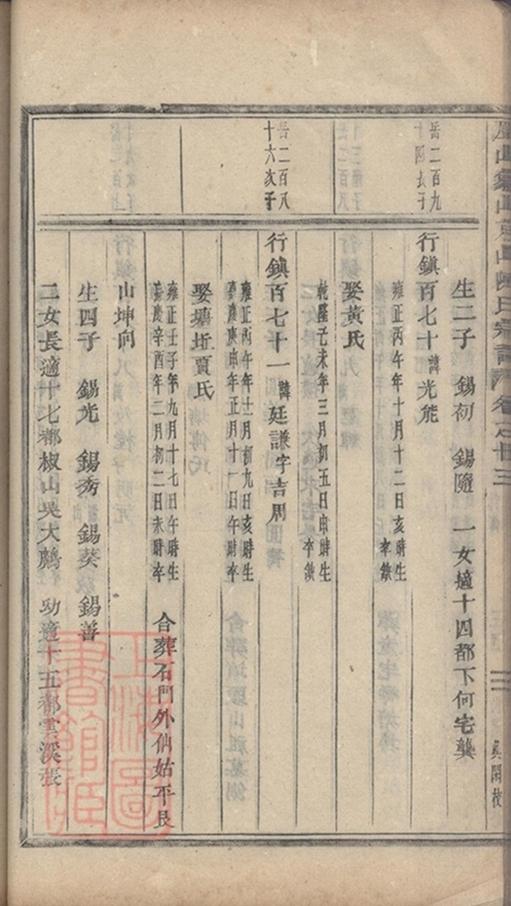 生二子 錫初 錫隨 一女適十四都下何宅龔
岳二百九
十四長子
行鎮百七十諱光能
雍正丙午年十月十二日亥時生
卒缺
娶黃氏
乾隆己未年三月初五日申時生
卒缺
岳二百八
十六次子
行鎮百七十一諱廷謙字吉周
雍正丙午年十二月初九日亥時生
嘉慶庚申年正月十一日午時卒
娶塘坵賈氏
雍正壬子年九月十七日午時生
嘉慶辛酉年二月初二日未時卒
合葬石門外仙姑平艮
山坤向
生四子 錫光 錫秀 錫葵 錫善
二女長適十七都椒山吳大鵬 幼適十五都雲溪張